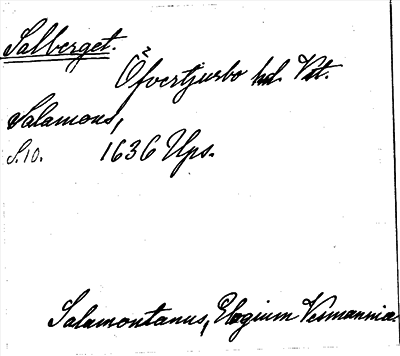 Salberget.
Öfvertjurbo hd. Vstl.
Salamons,
S. 10. 1636 Ups.
Salamontanus, Elogium Vesmanniæ.